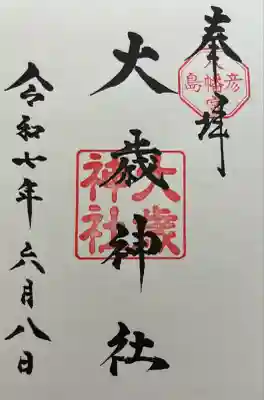 奉拝
彦島八幡宮
大歳神社
大歳神社
令和七年六月八日